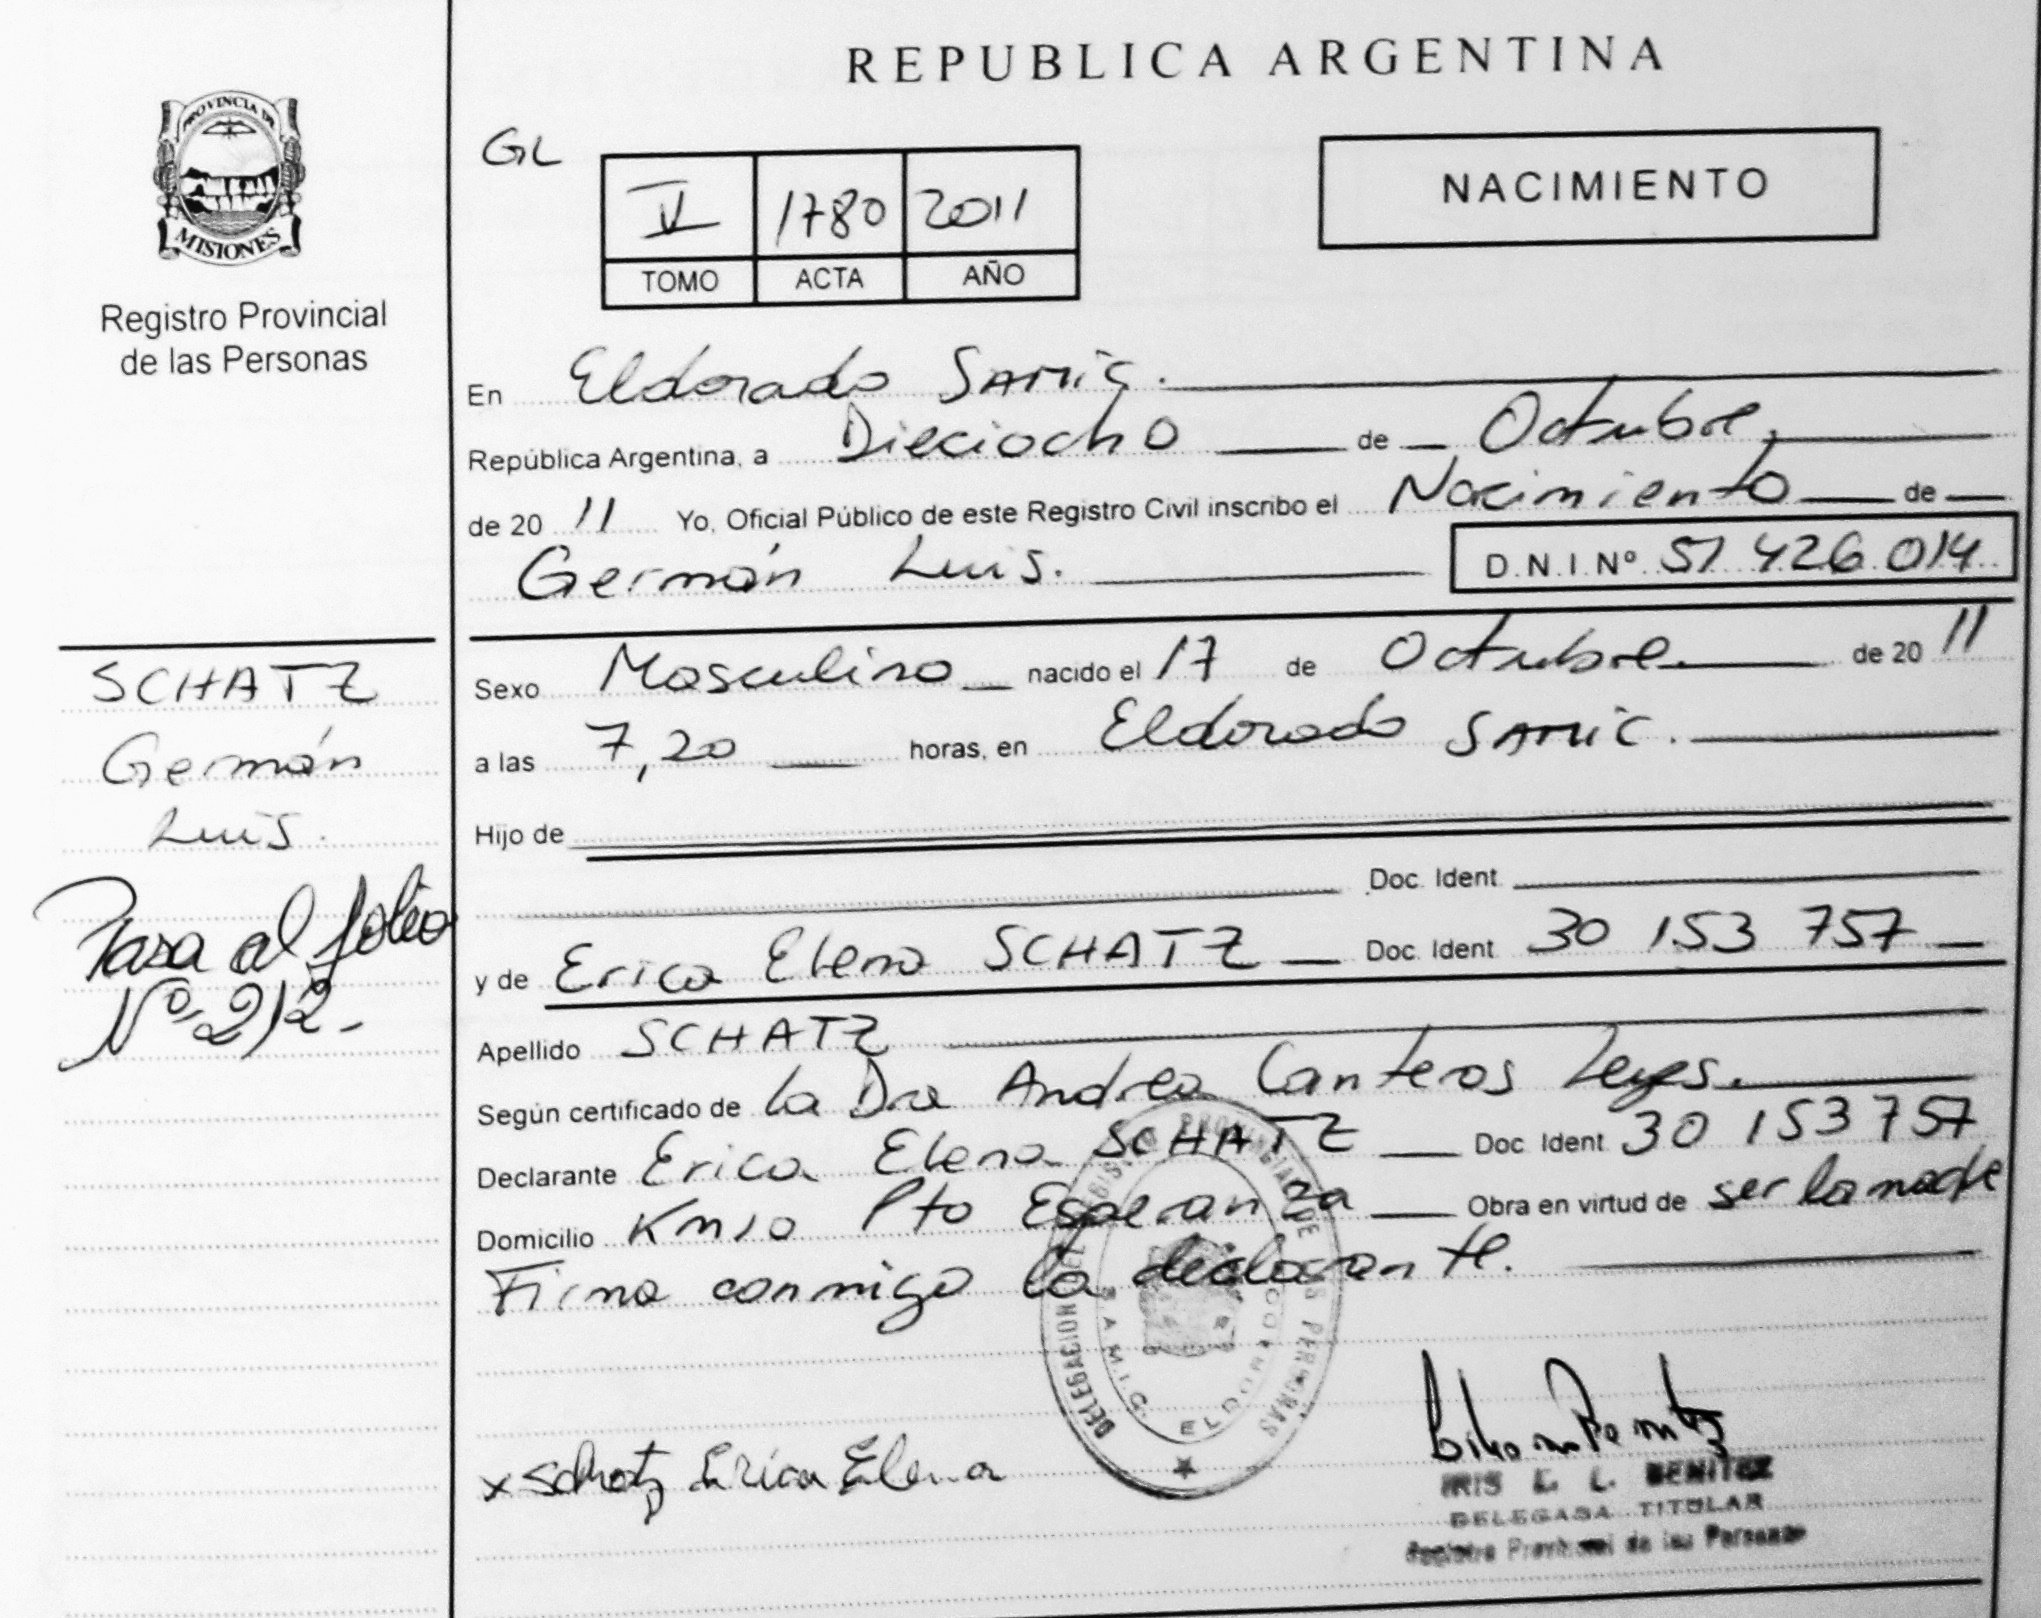 REPUBLICA ARGENTINA
PROVINCIA DE
MISIONES
Registro Provincial
de las Personas
GL
V 1780 2011
TOMO ACTA AÑO
NACIMIENTO
En Eldorado SAMIC.
República Argentina, a Dieciocho de Octubre,
de 20 11 Yo, Oficial Público de este Registro Civil inscribo el Nacimiento de
Germán Luis. D.N.I.Nº 51 426 014
SCHATZ
Germán
Luis.
Pasa al folio
Nº 212.-
Sexo Masculino nacido el 17 de Octubre de 20 11
a las 7,20 horas, en Eldorado SAMIC.
Hijo de
Doc. Ident
y de Erica Elena SCHATZ Doc. Ident 30 153 757
Apellido SCHATZ
Según certificado de la Dra Andrea Canteros
Declarante Erica Elena SCHATZ Doc. Ident 30 153 757
Domicilio Km 10 Pto Esperanza Obra en virtud de ser la madre
Firma conmigo la declarante.
DELEGACION DEL REGISTRO PROVINCIAL DE LAS PERSONAS
S.A.M.I.C. ELDORADO
x Schatz Erica Elena
IRIS E. L. BENITEZ
DELEGADA TITULAR
Registro Provincial de las Personas